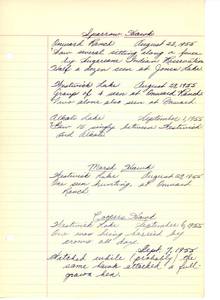 Sparrow Hawk
Onward Ranch August 23, 1955
Saw several sitting along a fence
by Sugarcane Indian Reservation
Half a dozen seen at Jones Lake
Westwick Lake August 29, 1955
Groups of 2 seen at Onward Ranch
Two alone also seen at Onward
Alkali Lake September 1, 1955
Saw 16 singly between Westwick
and Alkali
Marsh Hawk
Westwick Lake August 29, 1955
One seen hunting, at Onward
Ranch
Coopers Hawk
Westwick Lake September 6, 1955
One was being harried by
crows all day
Sept. 7, 1955
Watched while (probably) the
same hawk attacked a full-
grown hen.